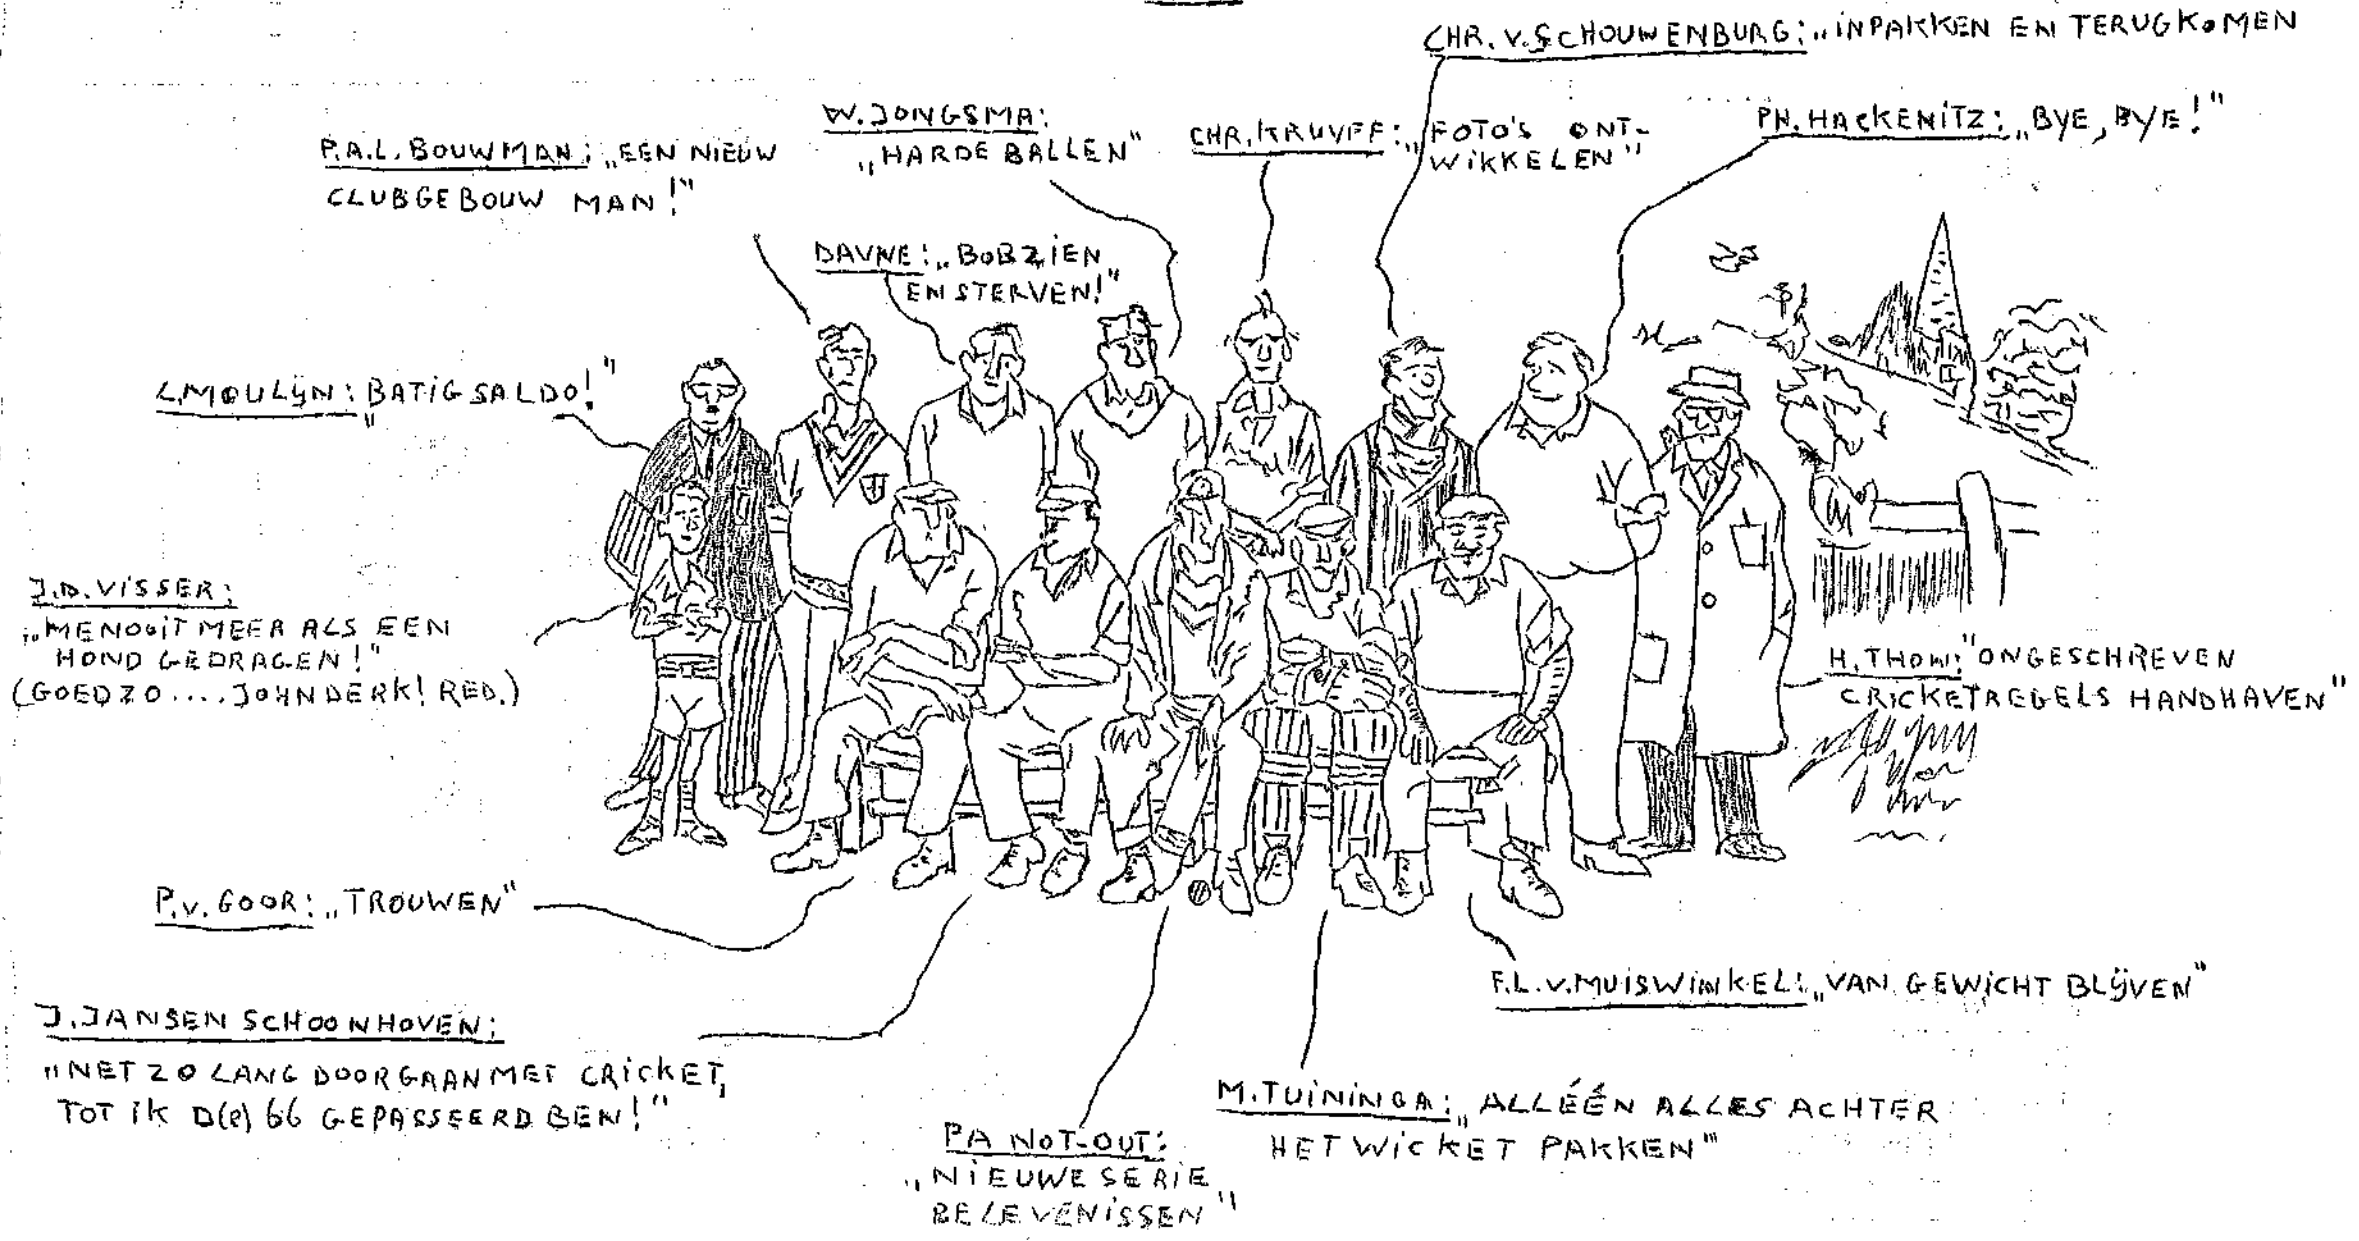 CHR. V. SCHOUWENBURG: „INPAKKEN EN TERUGKOMEN
PH. HACKENITZ: „BYE, BYE!"
W. JONGSMA:
„HARDE BALLEN"
CHR. KRUYFF: „FOTO'S ONT-
WIKKELEN"
P.A.L. BOUWMAN: „EEN NIEUW
CLUBGEBOUW MAN!"
DAVNE: „BOBZIEN
EN STERVEN!"
L. MOULIJN: „BATIG SALDO!"
J.D. VISSER:
„ME NOOIT MEER ALS EEN
HOND GEDRAGEN!"
(GOED ZO .... JOHN DERK! RED.)
H. THOM: "ONGESCHREVEN
CRICKETREGELS HANDHAVEN"
P. v. GOOR: „TROUWEN"
F.L. v. MUISWINKEL: „VAN GEWICHT BLIJVEN"
J. JANSEN SCHOONHOVEN:
"NET ZO LANG DOORGAAN MET CRICKET,
TOT IK D(e) 66 GEPASSEERD BEN!"
M. TUININGA: „ALLÉÉN ALLES ACHTER
HET WICKET PAKKEN"
PA NOT-OUT:
„NIEUWE SERIE
BELEVENISSEN"